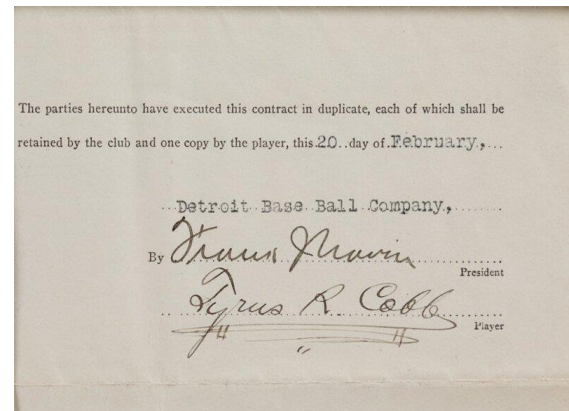 The parties hereunto have executed this contract in duplicate, each of which shall be
retained by the club and one copy by the player, this 20 day of February,
Detroit Base Ball Company,
By Frank Navin
President
Tyrus R. Cobb
Player